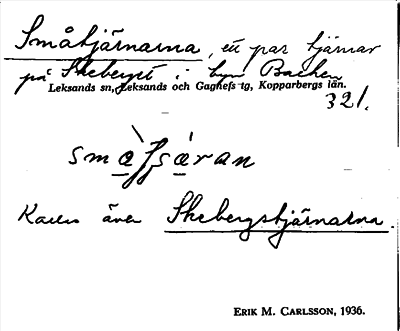 Småtjärnarna, ett par tjärnar
på Skeberget i byn Backen
Leksands sn, Leksands och Gagnefs tg, Kopparbergs län.
321.
Kallas även Skebergstjärnarna.
ERIK M. CARLSSON, 1936.